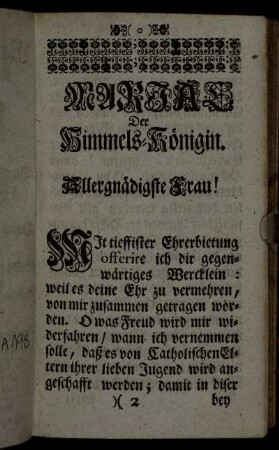 MARIAE
Der
Himmels-Königin.
Allergnädigste Frau!
MIt tieffister Ehrerbietung
offerire ich dir gegen-
wärtiges Wercklein:
weil es deine Ehr zu vermehren,
von mir zusammen getragen wor-
den. O was Freud wird mir wi-
derfahren / wann ich vernemmen
solle, daß es von Catholischen El-
tern ihrer lieben Jugend wird an-
geschafft werden; damit in diser
)( 2 bey